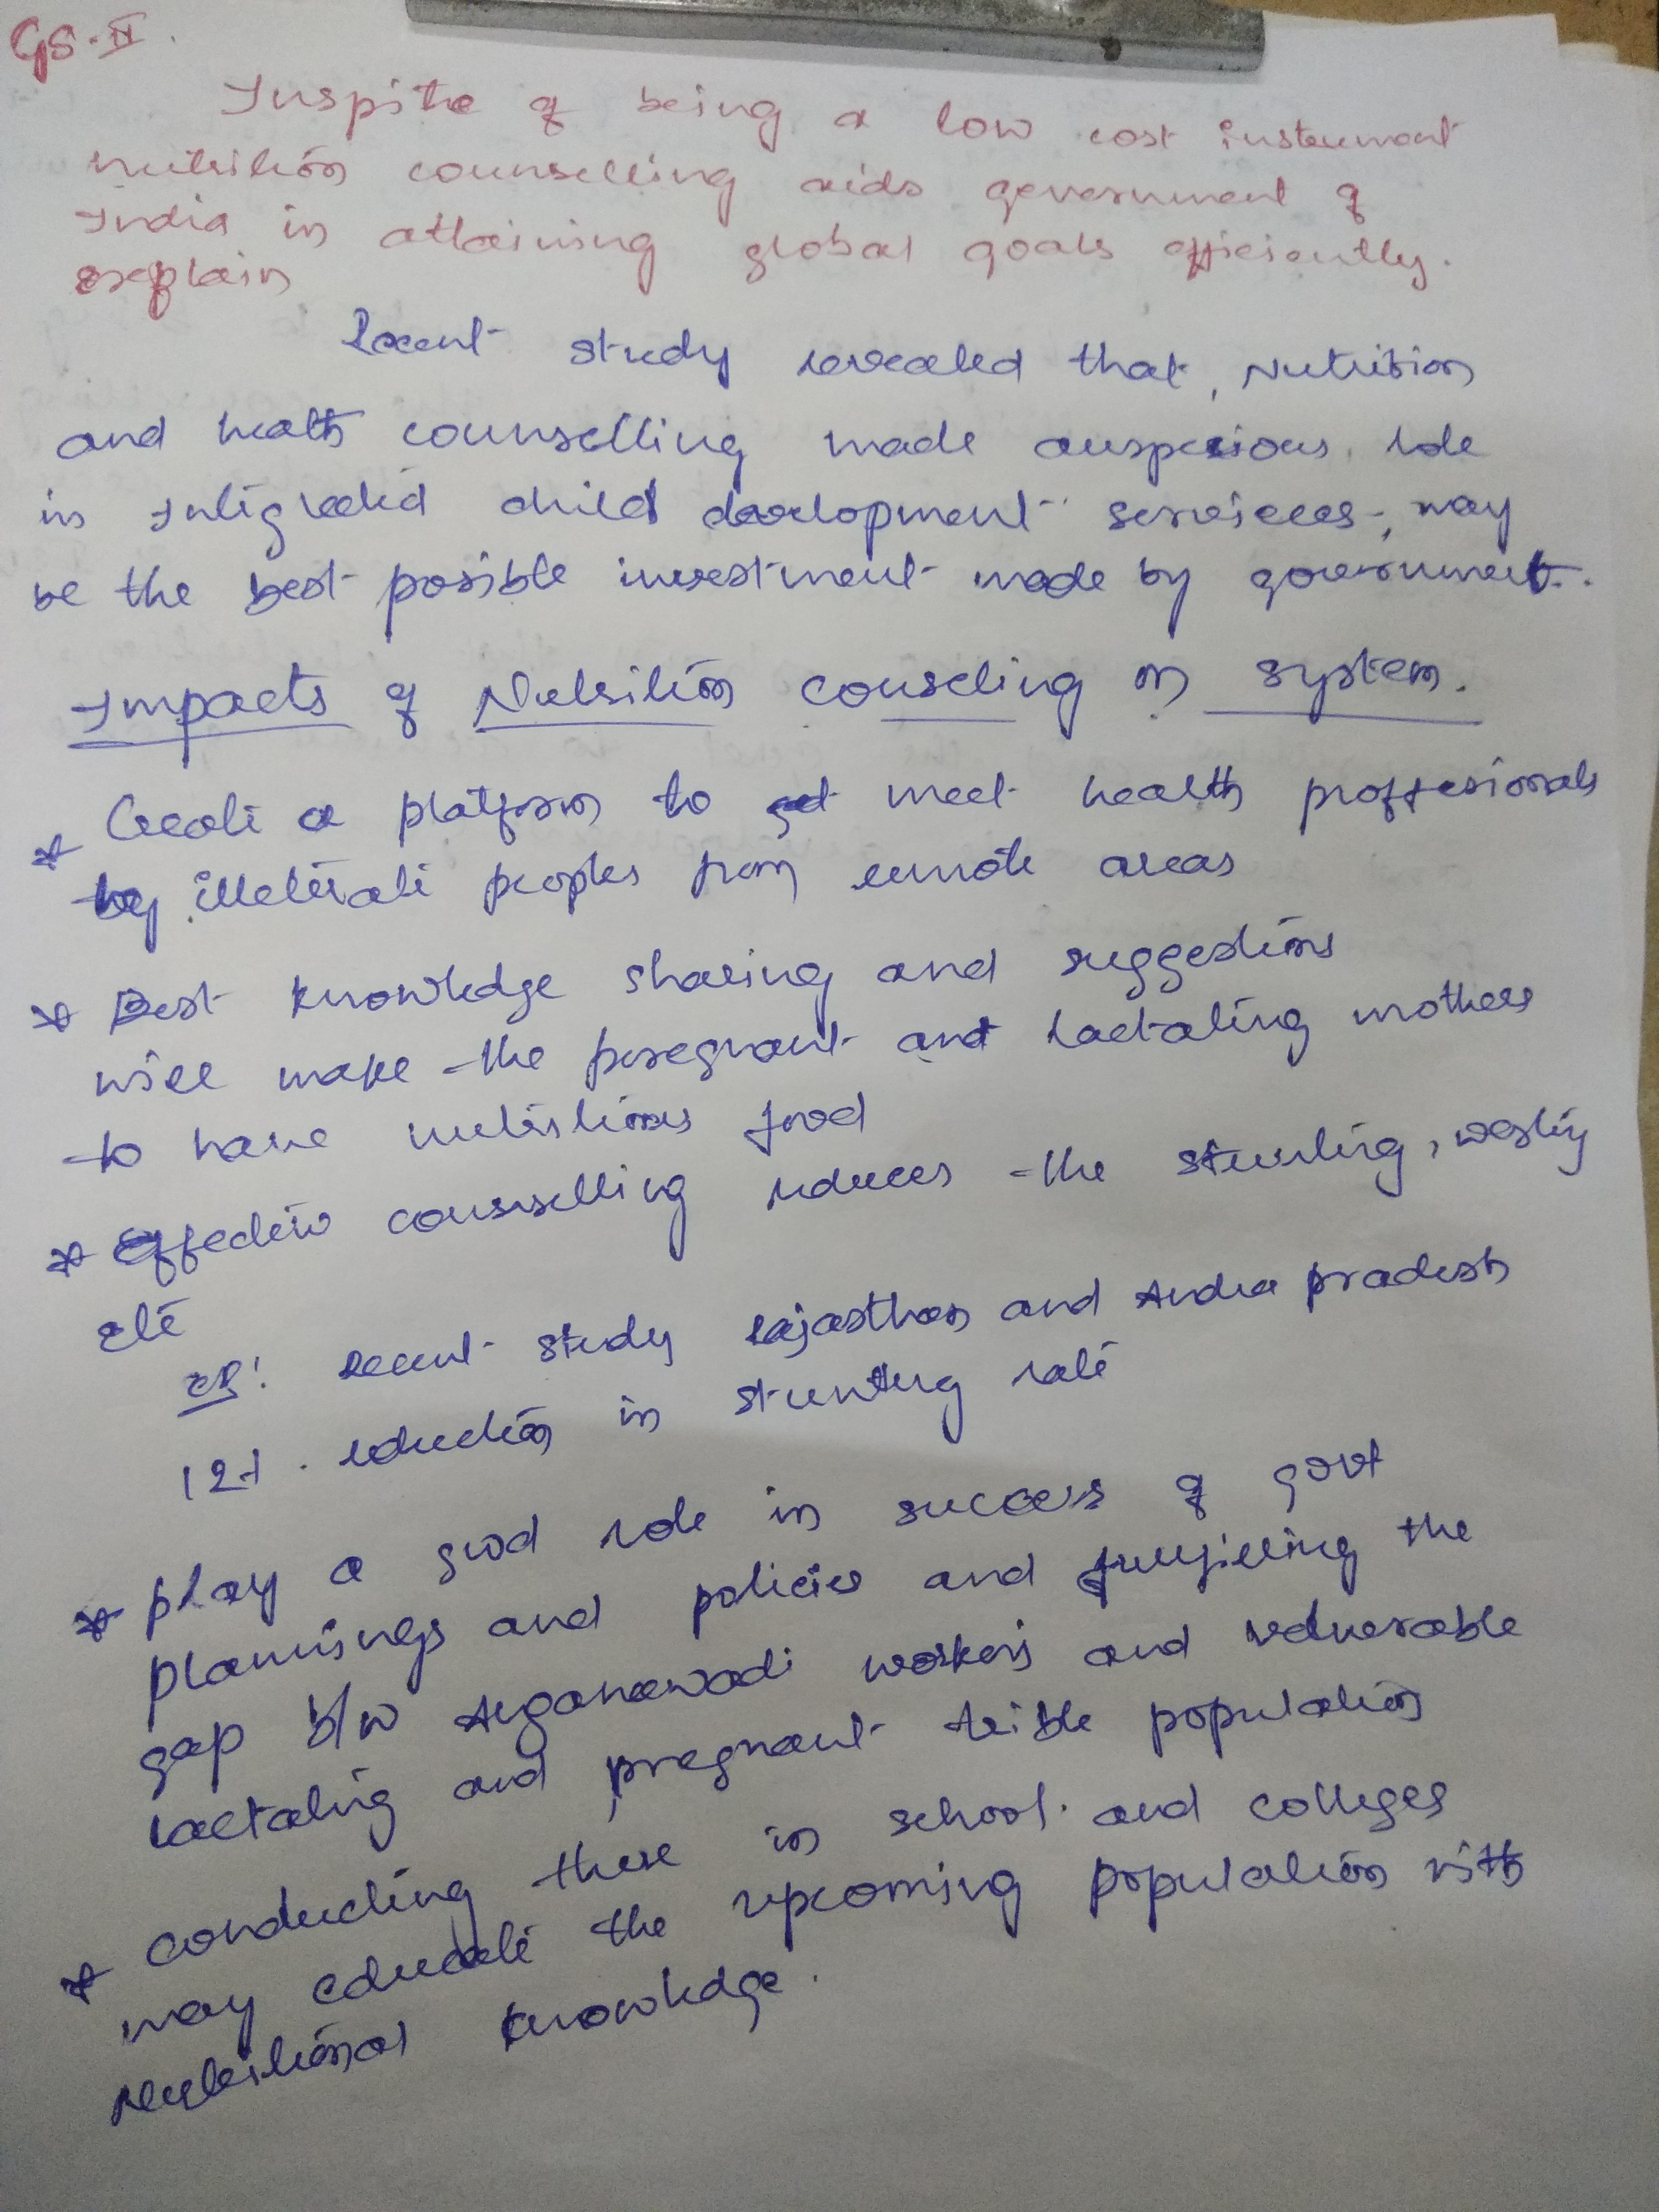 GS-II.
Inspite of being a low cost instrument
nutrition counselling aids government of
India in attaining global goals efficiently.
explain
Recent study revealed that, Nutrition
and health counselling made auspecious role
in Integrated child development services, may
be the best possible investment made by government.
Impacts of Nutrition counseling on system.
* Create a platform to meet health proffesionals
by illeterate peoples from remote areas
* Best knowledge sharing and suggestions
will make the pregnant and lactating mothers
to have nutritious food
* Effective counselling reduces the stunting, wasting
etc
eg: Recent study Rajasthan and Andra pradesh
12%. reduction in stunting rate
* play a good role in success of govt
plannings and policies and fullfilling the
gap b/w Anganawadi workers and vulnerable
lactating and pregnant trible population
* conducting these in school and colleges
may educate the upcoming population with
Nutritional knowledge.